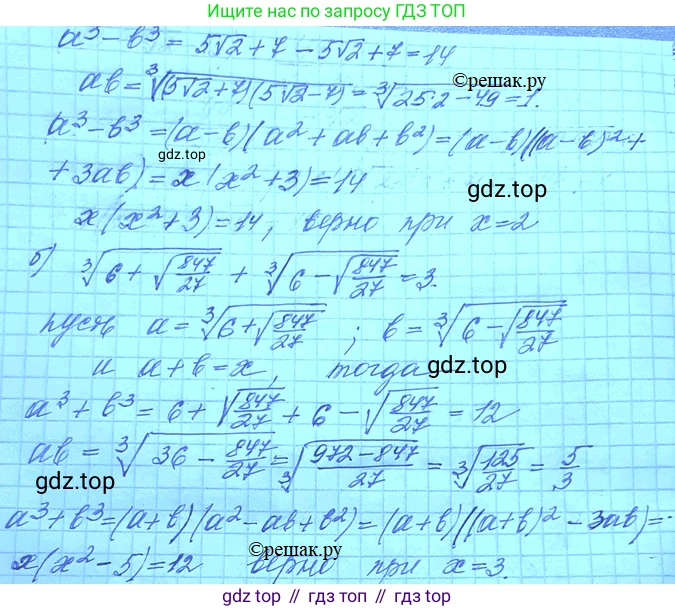 Ищите нас по запросу ГДЗ ТОП
a³ - b³ = 5√2 + 7 - 5√2 + 7 = 14
©решак.ру
ab = ∛(5√2+7)(5√2-7) = ∛25·2-49 = 1.
a³ - b³ = (a-b)(a² + ab + b²) = (a-b)((a-b)² +
gdz.top
+ 3ab) = x(x² + 3) = 14
gdz.top
x(x² + 3) = 14, верно при x = 2
б) ∛6 + √847/27 + ∛6 - √847/27 = 3.
gdz.top
пусть a = ∛6 + √847/27 ; b = ∛6 - √847/27
и a + b = x, тогда
gdz.top
a³ + b³ = 6 + √847/27 + 6 - √847/27 = 12
ab = ∛36 - 847/27 = ∛972-847/27 = ∛125/27 = 5/3
gdz.top
gdz.top
a³ + b³ = (a+b)(a² - ab + b²) = (a+b)((a+b)² - 3ab) =
©решак.ру
x(x² - 5) = 12 верно при x = 3.
gdz top // гдз топ // gdz.top